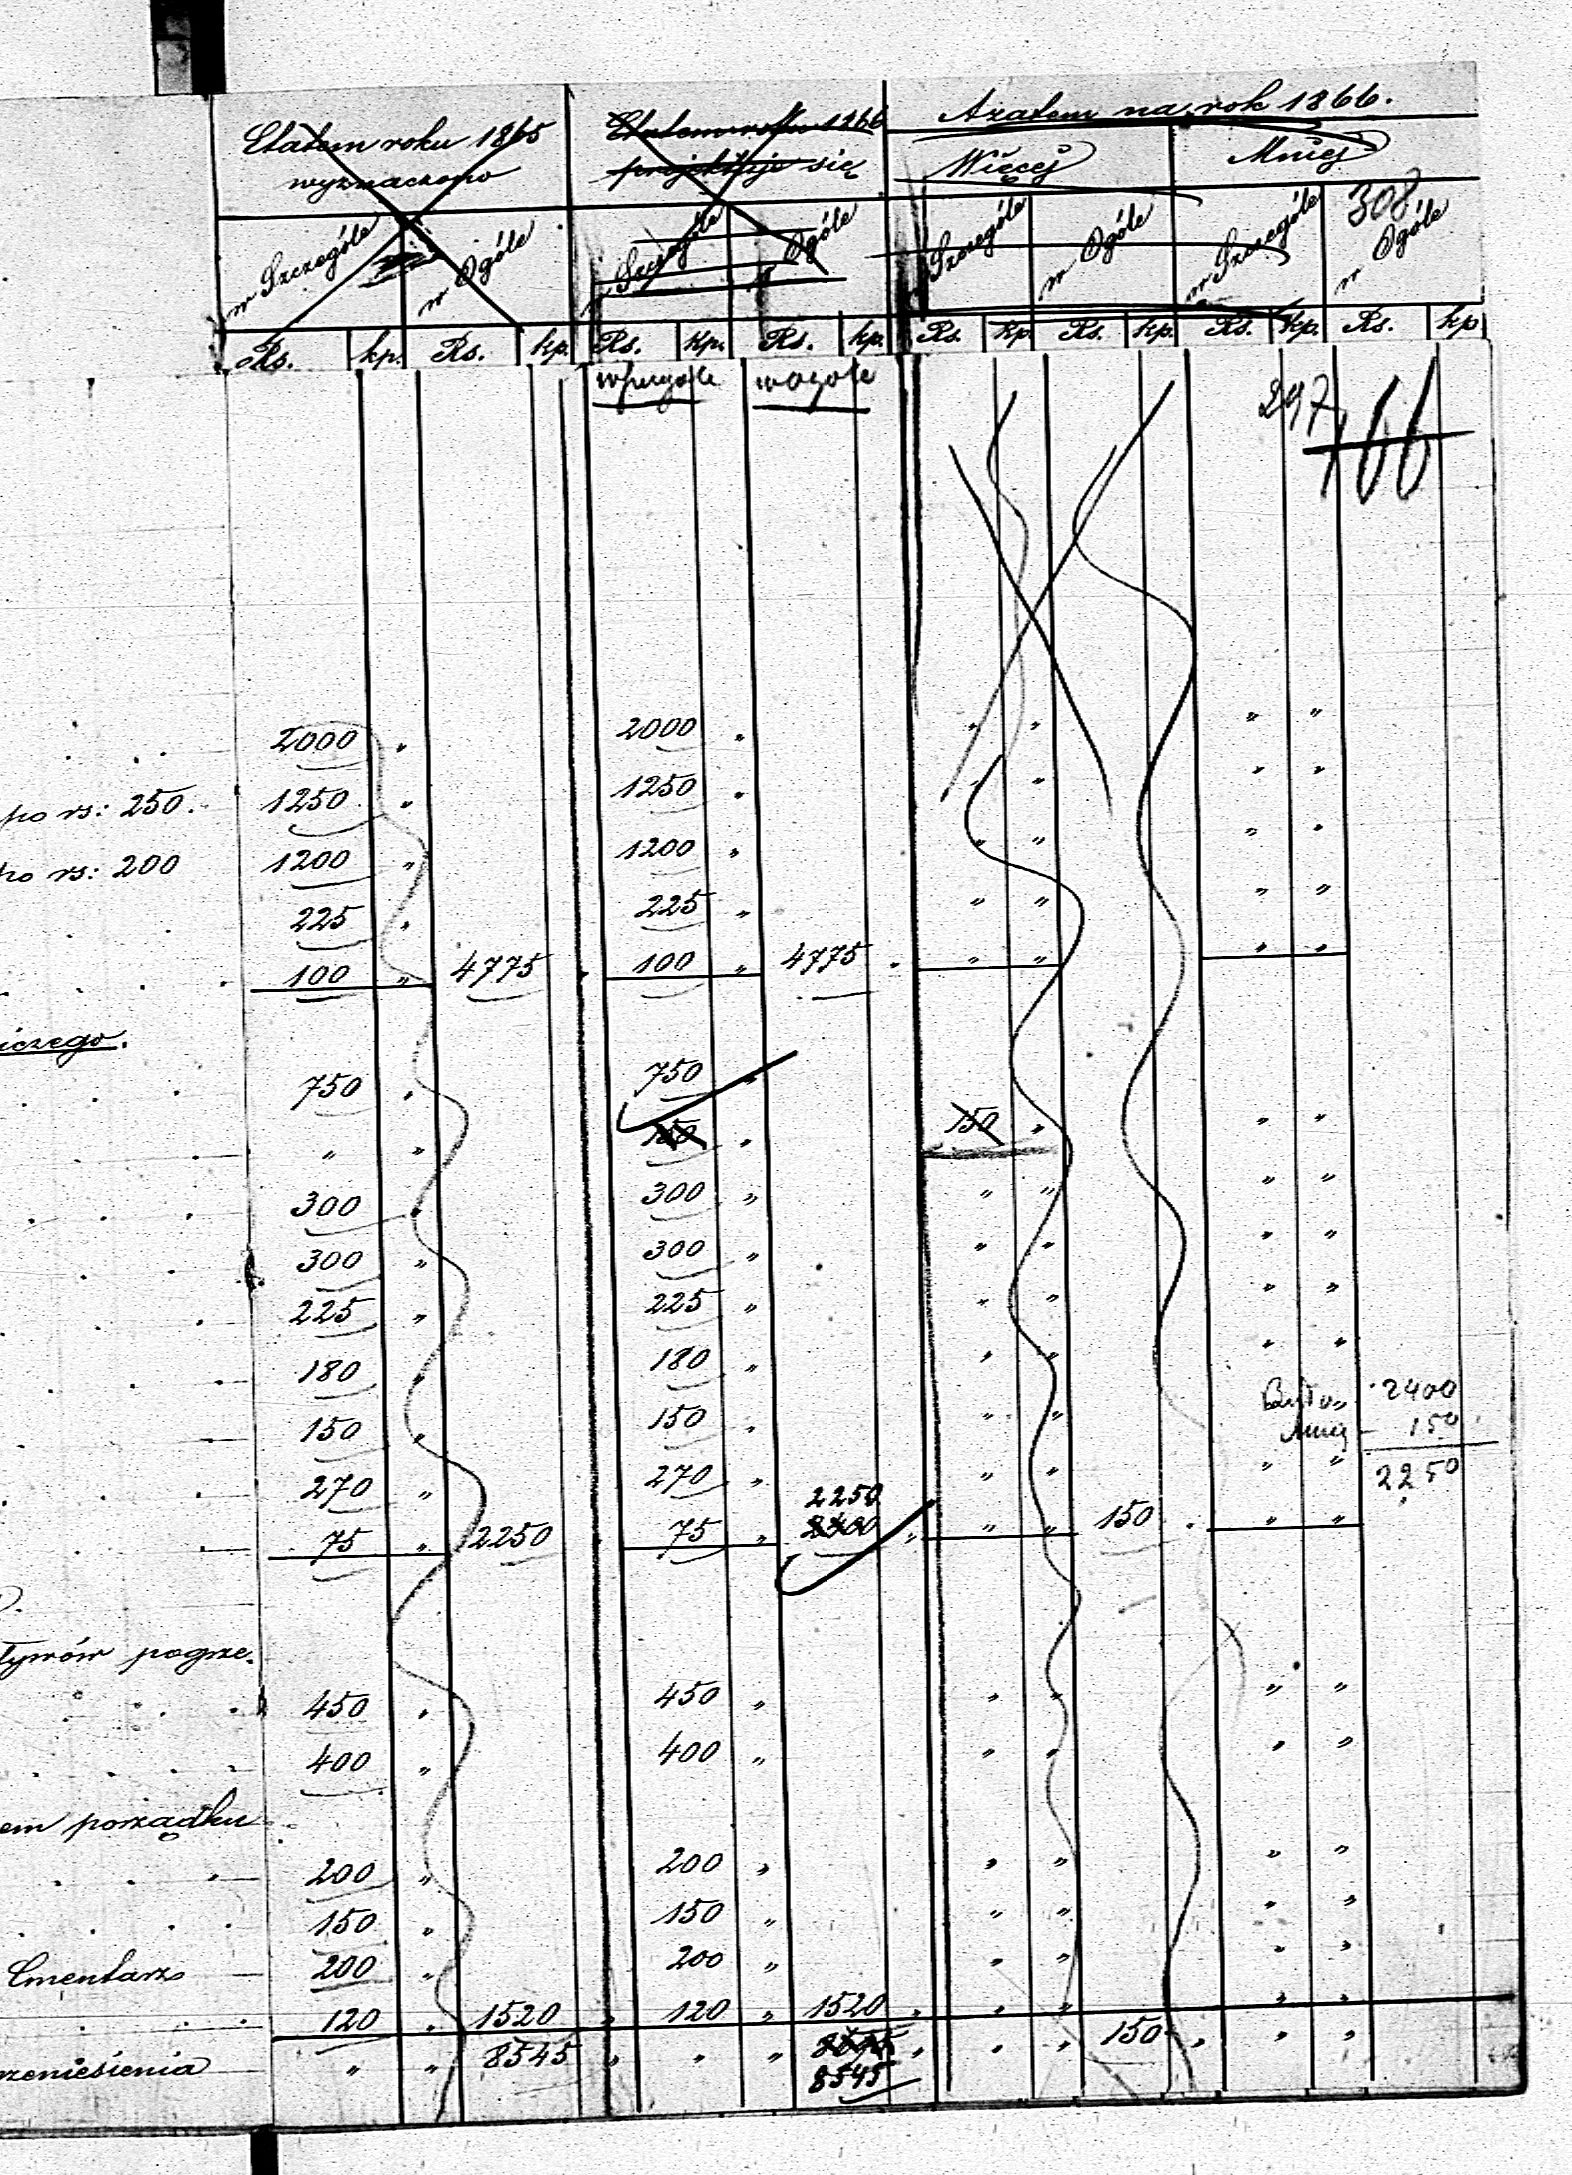 Etatem roku 1865 Etatem roku 1866 Azatem na rok 1866.
wyznaczono projektuje się Więcej Mniej
308
w Szczególe w Ogóle w Szczególe w Ogóle w Szczególe w Ogóle w Szczególe w Ogóle
Rs. kp. Rs. kp. Rs. kp. Rs. kp. Rs. kp. Rs. kp. Rs. kp. Rs. kp
w ogóle 297 166
2000 " 2000 " " " " "
po rs: 250. 1250 " 1250 " " " " "
po rs: 200 1200 " 1200 " " " " "
225 " 225 " " " " "
100 " 4775 . 100 " 4775 . " " " "
iczego.
750 " 750 "
" " 150 " 150 " " "
300 " 300 " " " " "
300 " 300 " " " " "
225 " 225 " " " " "
180 " 180 " " " " "
2400
150 " 150 " " "
Mniej – 150
270 " 270 " " " " " 2250
2250
75 " 2250 . 75 " 2400 " " " 150 . " "
tywów pogrze.
450 " 450 " " " " "
400 " 400 " " " " "
em porządku
200 " 200 " " " " "
150 " 150 " " " " "
Cmentarz 200 " 200 " " " " "
120 " 1520 " 120 " 1520 " " " " "
rzeniesienia " " 8545 " " " 8695 " " " 150 . " "
8545